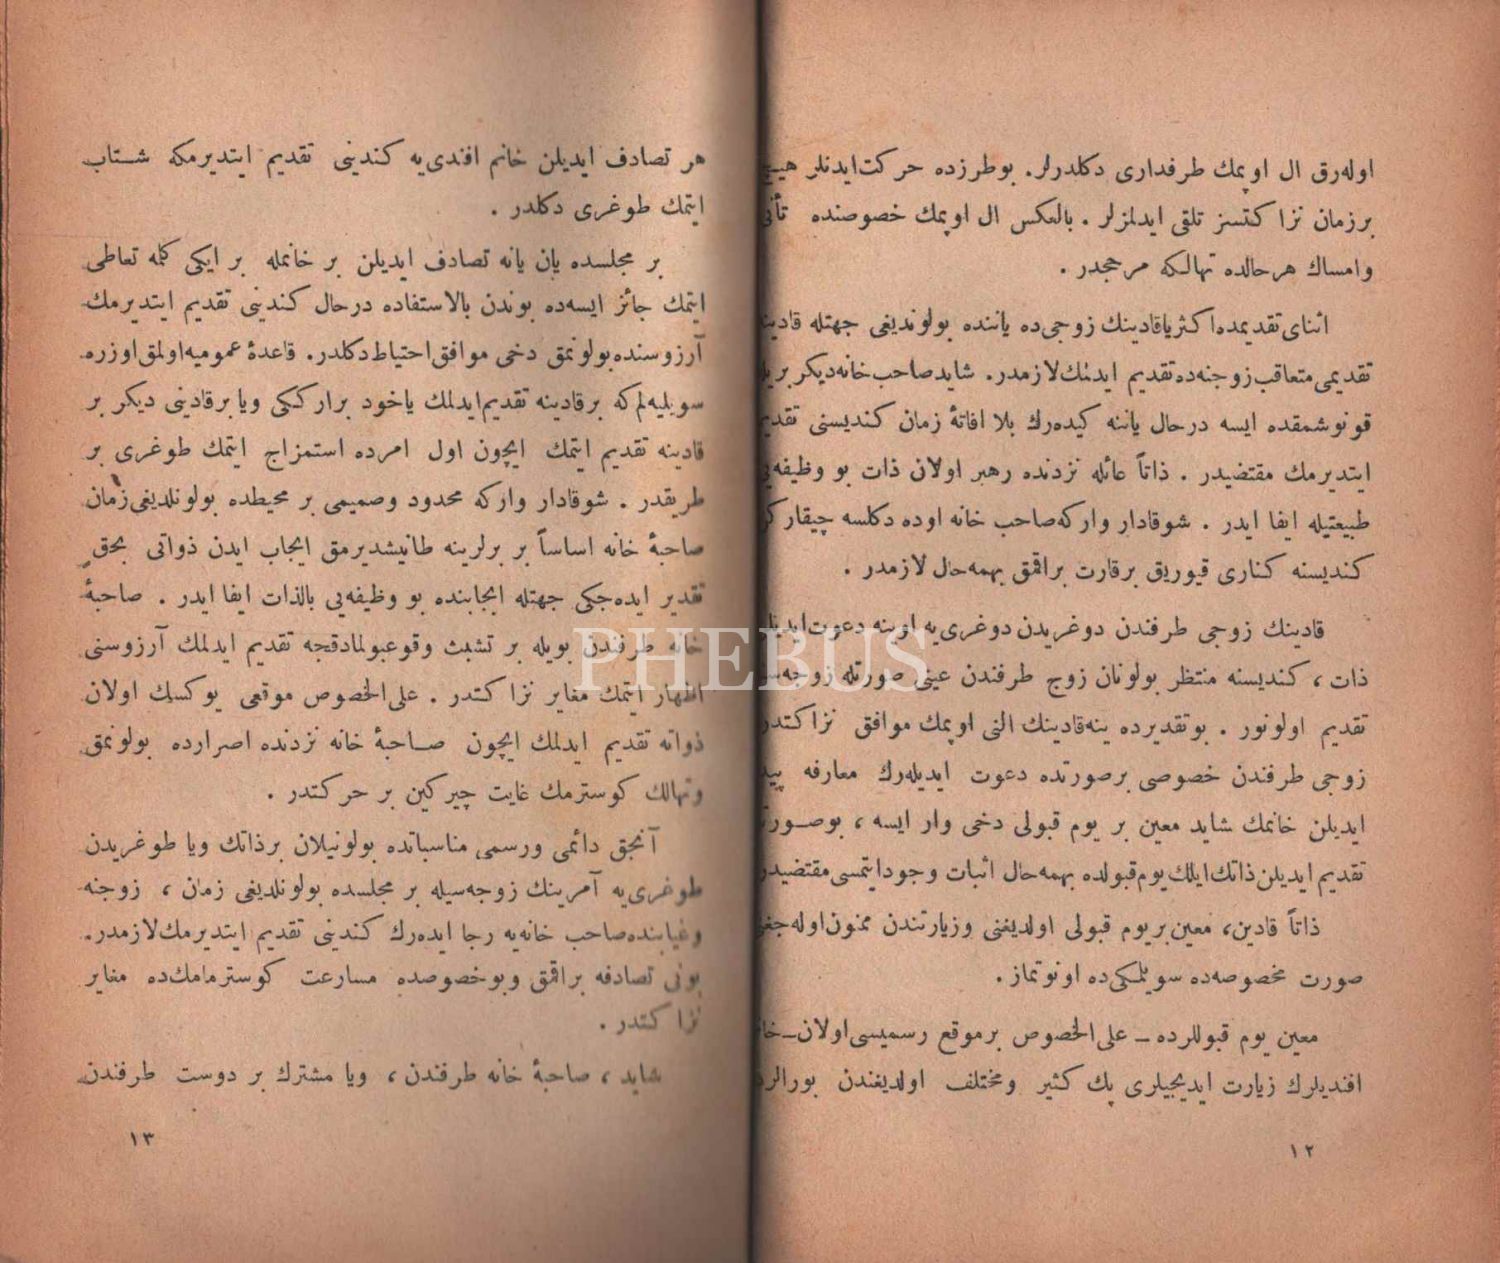 اوله‌رق ال اوپمك طرفداری دكلدرلر. بوطرزده حركت ایدنلر هیچ
برزمان نزاكتسز تلقی ایدلمزلر. بالعكس ال اوپمك خصوصنده تأنی
وامساك هرحالده تهالكه مرجحدر.
اثنای تقدیمده اكثریا قادینك زوجی‌ده یاننده بولوندیغی جهتله
تقدیمی متعاقب زوجنه‌ده تقدیم ایدلمك لازمدر. شاید صاحب خانه دیكر
قونوشمقده ایسه درحال یاننه كیده‌رك بلا افاتهٔ زمان كندیسنی تقدیم
ایتدیرمك مقتضیدر. ذاتاً عائله نزدنده رهبر اولان ذات بو وظیفه‌یی
طبیعتیله ایفا ایدر. شوقادار واركه صاحب خانه اوده دكلسه چیقاركن
كندیسنه كناری قیوریق برقارت براقمق بهمه‌حال لازمدر.
قادینك زوجی طرفندن دوغریدن دوغری‌یه اوینه دعوت ایدیلن
ذات، كندیسنه منتظر بولونان زوج طرفندن عینی صورتله زوجه‌سنه
تقدیم اولونور. بوتقدیرده ینه قادینك النی اوپمك موافق نزاكتدر.
زوجی طرفندن خصوصی برصورتده دعوت ایدیله‌رك معارفه پیدا
ایدیلن خانمك شاید معین بر یوم قبولی دخی وار ایسه، بوصورتله
تقدیم ایدیلن ذاتك ایلك یوم قبولده بهمه‌حال اثبات وجود ایتمسی مقتضیدر.
ذاتاً قادین، معین بر یوم قبولی اولدیغنی وزیارتندن ممنون اوله‌جغنی
صورت مخصوصه‌ده سویلمكی‌ده اونوتماز.
معین یوم قبوللرده ـ علی‌الخصوص برموقع رسمیسی اولان ـ خانم
افندیلرك زیارت ایدیجیلری پك كثیر ومختلف اولدیغندن بورالرده
١٢
هر تصادف ایدیلن خانم افندی‌یه كندینی تقدیم ایتدیرمكه شتاب
ایتمك طوغری دكلدر.
بر مجلسده یان یانه تصادف ایدیلن بر خانمله بر ایكی كلمه تعاطی
ایتمك جائز ایسه‌ده بوندن بالاستفاده درحال كندینی تقدیم ایتدیرمك
آرزوسنده بولونمق دخی موافق احتیاط دكلدر. قاعدهٔ عمومیه اولمق اوزره
سویلیه‌لم كه برقادینه تقدیم ایدلمك یاخود برارككی ویا برقادینی دیكر بر
قادینه تقدیم ایتمك ایچون اول امرده استمزاج ایتمك طوغری بر
طریقدر. شوقادار واركه محدود وصمیمی بر محیطده بولونلدیغی زمان
صاحبهٔ خانه اساساً بر برلرینه طانیشدیرمق ایجاب ایدن ذواتی بحق
تقدیر ایده‌جكی جهتله ایجابنده بو وظیفه‌یی بالذات ایفا ایدر. صاحبهٔ
خانه طرفندن بویله بر تشبث وقوعبولمادقجه تقدیم ایدلمك آرزوسنی
اظهار ایتمك مغایر نزاكتدر. علی‌الخصوص موقعی یوكسك اولان
ذواته تقدیم ایدلمك ایچون صاحبهٔ خانه نزدنده اصرارده بولونمق
وتهالك كوسترمك غایت چیركین بر حركتدر.
آنجق دائمی ورسمی مناسباتده بولونیلان برذاتك ویا طوغریدن
طوغری‌یه آمرینك زوجه‌سیله بر مجلسده بولونلدیغی زمان، زوجنه
وغیابنده صاحب خانه‌یه رجا ایده‌رك كندینی تقدیم ایتدیرمك لازمدر.
بونی تصادفه براقمق وبوخصوصده مسارعت كوسترمامك‌ده مغایر
نزاكتدر.
شاید، صاحبهٔ خانه طرفندن، ویا مشترك بر دوست طرفندن
١٣
PHEBUS